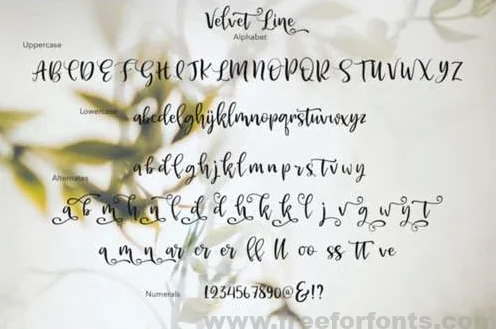 Velvet Line
Alphabet
Uppercase
ABCDEFGHIJKLMNOPQRSTUVWXYZ
Lowercase
abcdefghijklmnopqrstuvwxyz
Alternates
a b d l g h j k l m n p r s t v w y
a b m h n l d d h k k l j v g w y t
a m n ar er er ll ll oo ss tt ve
Numerals
1234567890@&!?
www.freeforfonts.com